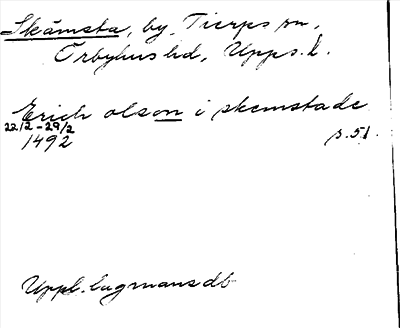 Skämsta, by, Tierps sn,
Örbyhus hd, Upps. l.
Erich olson i skemstade
22/2-29/2
1492 s. 51
Uppl. lagmansdb